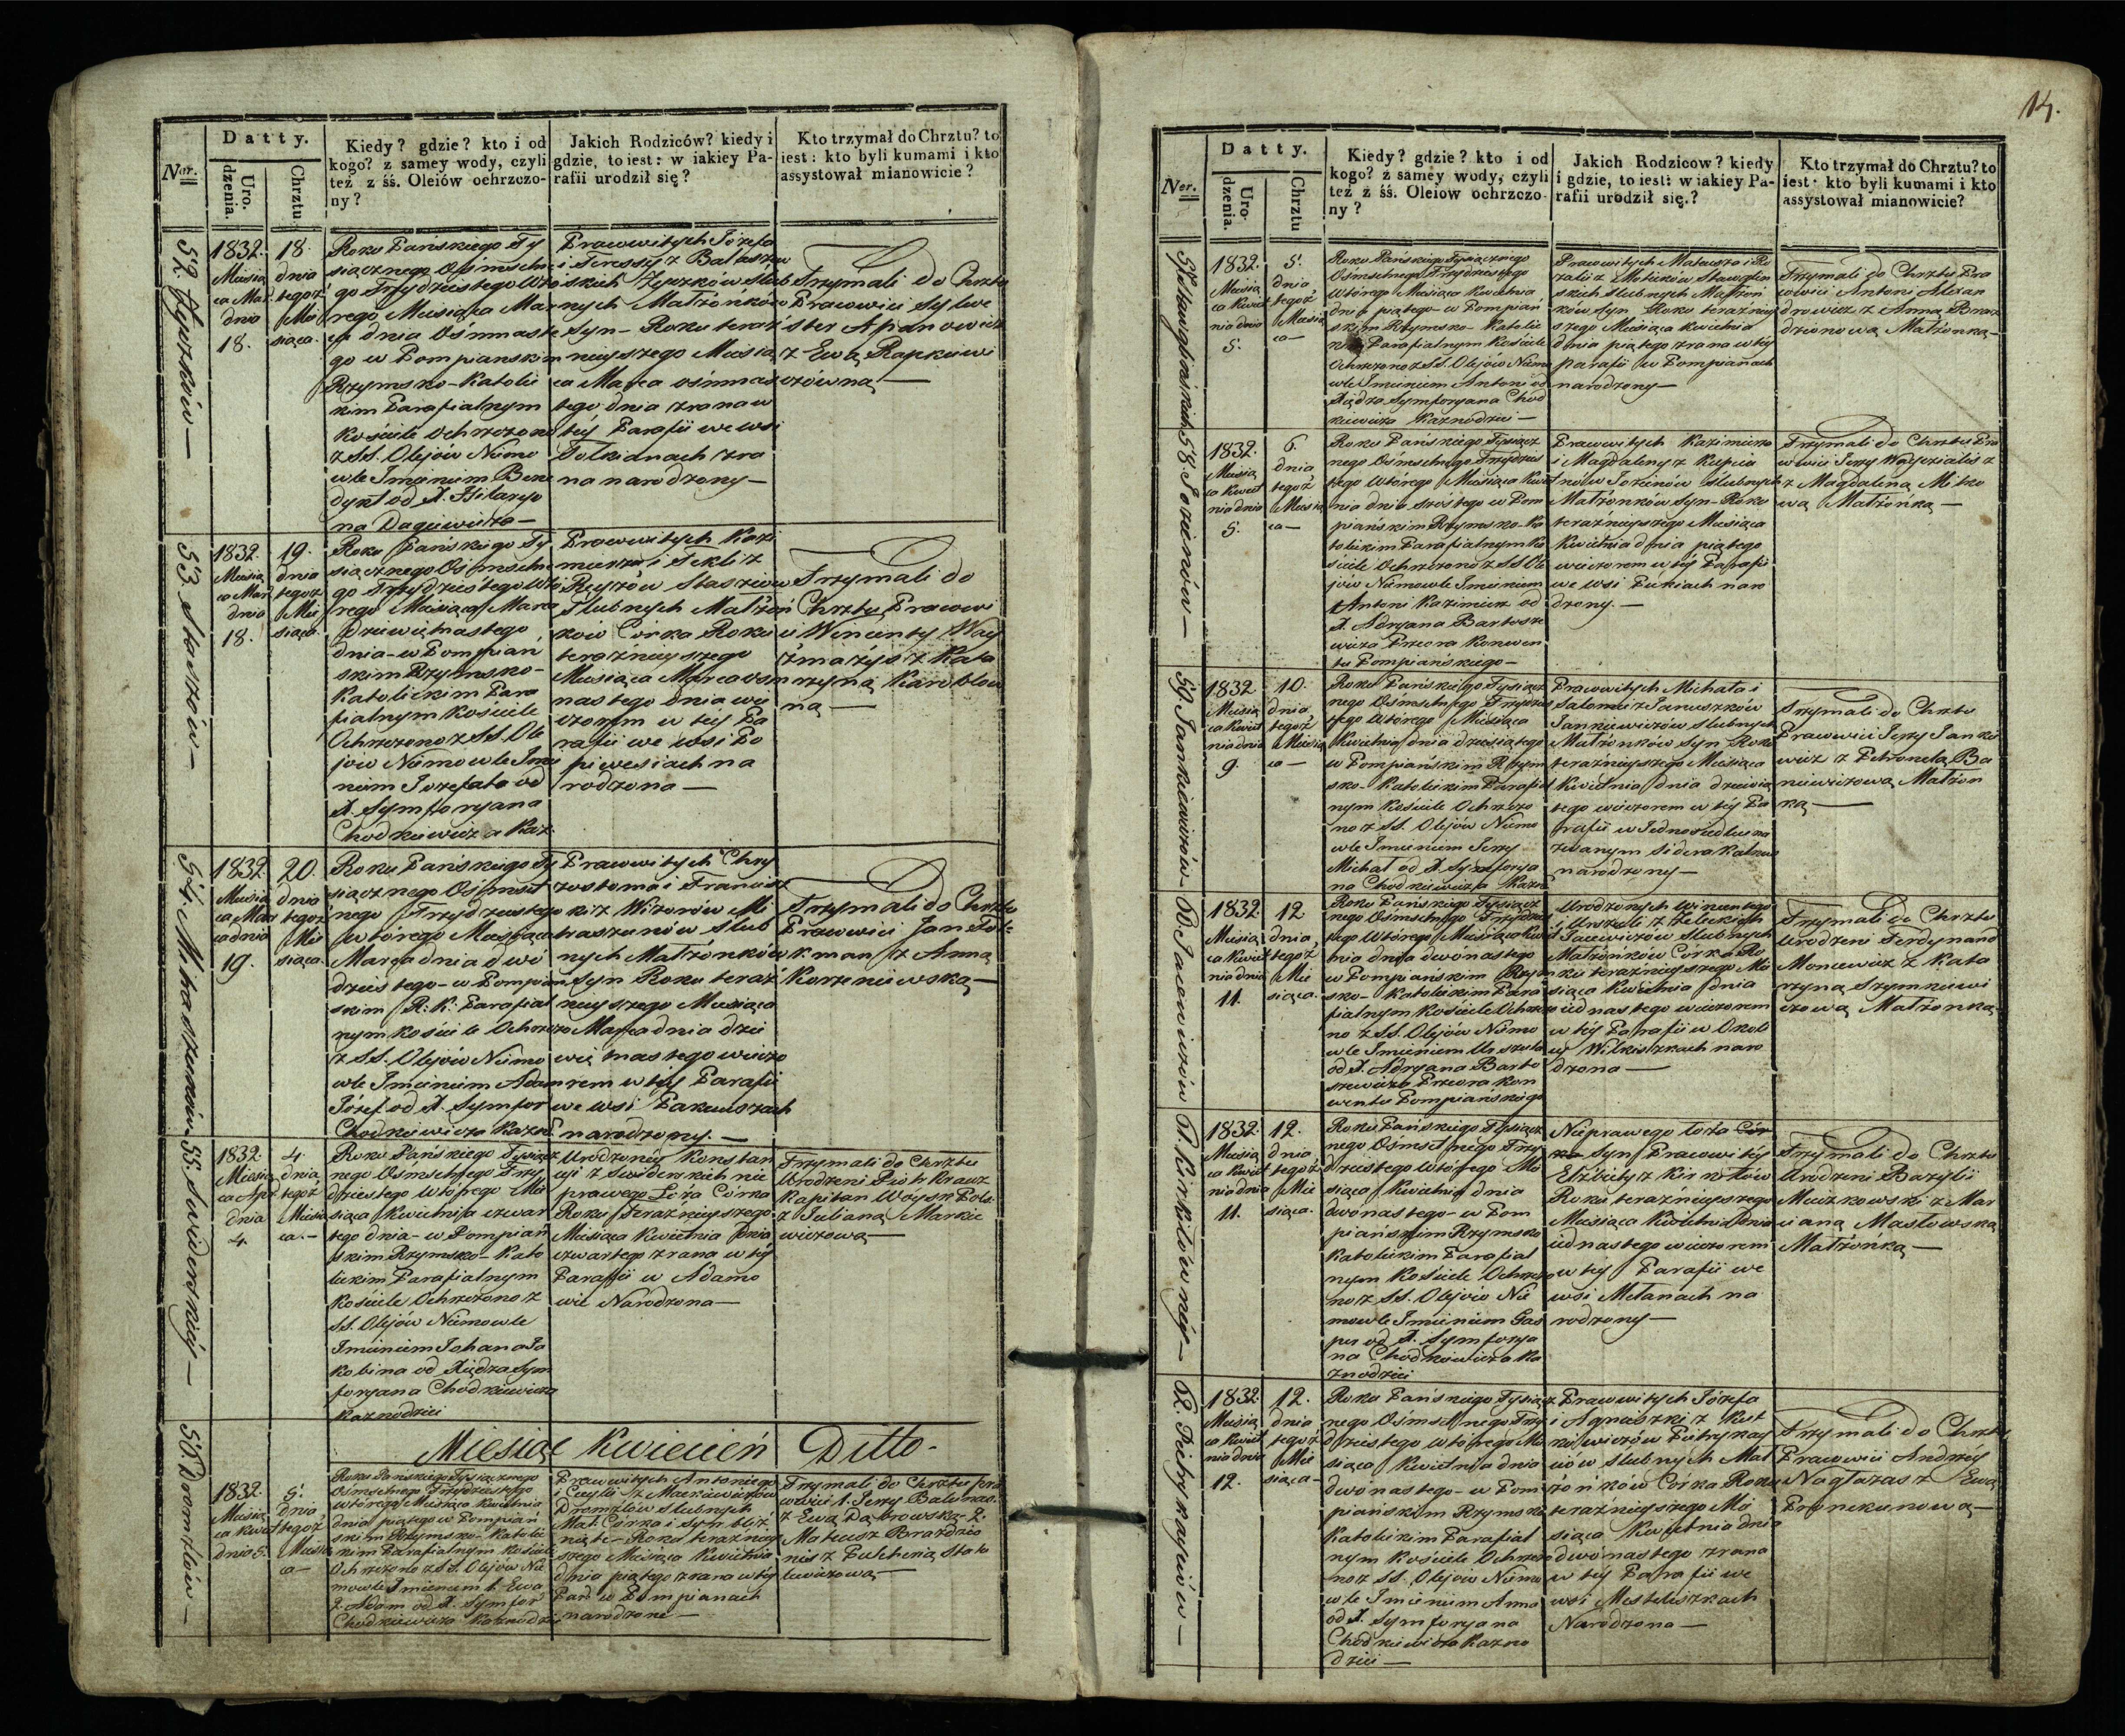 Ner.
Datty.
Uro-
dzenia.
Chrztu
Kiedy? gdzie? kto i od
kogo? z samey wody, czyli
też z śś. Oleiów ochrzczo-
ny?
Jakich Rodziców? kiedy i
gdzie, to iest: w iakiey Pa-
rafii urodził się?
Kto trzymał do Chrztu? to
iest: kto byli kumami i kto
assystował mianowicie?
52.
1832.
Miesią
ca Mar
dnia
18.
18.
dnia
tegoż
Mie
siąca.
Roku Pańskiego Ty
siącznego Ośmsetne
go Trzydziestego Wtó
rego Miesiąca Mar
ca dnia Ośmnaste
go w Pompianskim
Rzymsko-Katolic
kim Parafialnym
Kościele Ochrzczono
z SS. Olejów Niemo
wle Imieniem Bene
dykt od X. Hilaryo
na Dagiewicza—
Prawowitych Józefa
i Teressy z
Slub
nych Małżonków
Syn- Roku teraź
nieyszego Miesią
ca Marca ośmnas
tego dnia zrana w
téj Parafii we wsi
Tolkianach zra
na narodzony—
Trzymali do Chrztu
Prawowici Sylwe
ster Apanowicz
z Ewą Rapkiewi
czówną—
53 Staszów—
1832.
Miesią
ca Mar
dnia
18.
19.
dnia
tegoż
Mie
siąca.
Roku Pańskiego Ty
siącznego Ośmsetne
go Trzydziestego Wtó
rego Miesiąca Marca
Dziewiętnastego
dnia-w Pompian
skim Rzymsko-
Katolickim Para
fialnym Kościele
Ochrzczono z SS. Ole
jow Niemowle Imie
niem Jozefata od
X. Symforyana
Chodkiewicza Kaz.
Prawowitych Kazi
mierza i Tekli z
Slubnych Małżon
ków Córka Roku
teraźnieyszego
Miesiąca Marca osm
nastego dnia wie
czorem w téj Pa
rafii we wsi Po
piewesiach na
rodzona—
Trzymali do
Chrztu Prawowi
ci Wincenty Way
z Kata
rzyną Karoblow
ną—
54.
1832
Miesią
ca Mar
ca dnia
19.
20.
dnia
tegoż
Mie
siąca.
Roku Pańskiego Ty
siącznego Ośmset
nego Trzydziestego
wtórego Miesiąca
Marca dnia dwu
dziestego-w Pompian
skim R: K: Parafial
nym Kościele Ochrzczo
z SS. Olejów Niemo
wle Imieniem Adam
Józef od X. Symfor
Chodkiewicza Kazn:
Prawowitych Chry
zostoma i Francisz
ki z Wizorów Mi
haszunów Slub
nych Małżonków
Syn Roku teraź
nieyszego Miesiąca
Marca dnia dzie
więtnastego wieczo
rem w téj Parafii
we wsi Pakuiszach
narodzony.—
Trzymali do Chrztu
Prawowici Jan Fol
kman z Anną
Korzeniewską—
55. Swiderskiéj—
1832.
Miesią
ca Apr.
dnia
4.
4.
dnia
tegoż
Miesią
ca.—
Roku Pańskiego Tysiącz
nego Ośmsetnego Trzy
dziestego Wtórego Mie
siąca Kwietnia czwar
tego dnia-w Pompiań
skim Rzymsko-Kato
lickim Parafialnym
Kościele Ochrzczono z
SS. Olejów Niemowle
Imieniem Johana Ja
kobina od Xiędza Sym
foryana Chodkiewicza
Kaznodziei
Urodzonéj Konstan
cyi z Swiderskich nie
prawego Łoża Córka
Roku Teraźnieyszego
Miesiąca Kwietnia dnia
czwartego zrana w téj
Parafii w Adamo
wie Narodzona—
Trzymali do Chrztu
Urodzeni Piotr Krauz
Kapitan Woysk Pols.
z Julianą Markie
wiczową—
Miesiąc Kwiecień Ditto-
56 Dromtów—
1832.
Miesią
ca Kwiet
dnia 5.
5.
dnia
tegoż
Miesią
ca—
Roku Pańskiego Tysiącznego
Ośmsetnego Trzydziestego
wtórego Miesiąca Kwietnia
dnia piątego w Pompiań
skim Rzymsko-Katolic
kim Parafialnym Kościele
Ochrzczono z SS. Olejów Nie
mowle Imieniem 1. Ewa
2. Adam od X. Symfor
Chodkiewicza Kaznodzie
Prawowitych Antoniego
i Cecylii z Mackiewiczów
Dromtów slubnych
Mał: Córka i Syn bliź
nięte- Roku teraźniey
szego Miesiąca Kwietnia
dnia piątego zrana w téj
Par: w Pompianach
narodzone—
Trzymali do Chrztu pra
wowici 1. Jerzy
z Ewą Dąbrowską- 2.
Mateusz
z Pulcherią Stato
lewiczową—
14.
Ner.
Datty.
Uro-
dzenia.
Chrztu
Kiedy? gdzie? kto i od
kogo? z samey wody, czyli
też z śś. Oleiow ochrzczo-
ny?
Jakich Rodzicow? kiedy
i gdzie, to iest: w iakiey Pa-
rafii urodził się.?
Kto trzymał do Chrztu? to
iest: kto byli kumami i kto
assystował mianowicie?
57. Stawglińskich
1832.
Miesią
ca Kwiet
nia dnia
5.
5.
dnia
tegoż
Miesią
ca—
Roku Pańskiego Tysiącznego
Ośmsetnego Trzydziestego
Wtórego Miesiąca Kwietnia
dnia piątego-w Pompiań
skim Rzymsko-Katolic
kim Parafialnym Kościele
Ochrzczono z SS. Olejów Niemo
wle Imieniem Antoni od
Xiędza Symforyana Chod
kiewicza Kaznodziei—
Prawowitych Mateusza i Ro
zalii z Stawgliń
skich slubnych Małżon
ków Syn Roku teraźniey
szego Miesiąca Kwietnia
dnia piątego zrana w téj
Parafii w Pompianach
narodzony—
Trzymali do Chrztu Pra
wowici Antoni Alexan
drowicz z Anną Braz
dzionową Małżonką—
58.
1832.
Miesią
ca Kwiet
nia dnia
5.
6.
dnia
tegoż
Miesią
ca—
Roku Pańskiego Tysiącz
nego Ośmsetnego Trzydzies
tego Wtórego Miesiąca Kwiet
nia dnia szóstego w Pom
piańskim Rzymsko-Ka
tolickim Parafialnym Ko
ściele Ochrzczono z SS Ole
jów Niemowle Imieniem
Antoni Kazimierz od
X. Adryana Bartosze
wicza Przeora Konwen
tu Pompiańskiego—
Prawowitych Kazimierza
i Magdaleny z
slubnych
Małżonków Syn- Roku
teraźnieyszego Miesiąca
Kwietnia dnia piątego
wieczorem w téj Parafii
we wsi Puniach naro
dzony.—
Trzymali do Chrztu Pra
wowici Jerzy
z Magdaleną Mitko
wą Małżonką—
59 Jankiewiczów—
1832
Miesią
ca Kwiet
nia dnia
9.
10.
dnia
tegoż
Miesią
ca—
Roku Pańskiego Tysiącz
nego Ośmsetnego Trzydzies
tego Wtórego Miesiąca
Kwietnia dnia dziesiątego
w Pompiańskim Rzym
sko-Katolickim Parafial
nym Kościele Ochrzczo
no z SS. Olejów Niemo
wle Imieniem Jerzy
Michał od X. Symforya
na Chodkiewicza Kazn:
Prawowitych Michała i
Salomei z Januszków
Jankiewiczów slubnych
Małżonków Syn Roku
teraźnieyszego Miesiąca
Kwietnia dnia dziewią
tego wieczorem w téj Pa
rafii w Jednosiedlu na
zwanym
narodzony—
Trzymali do Chrztu
Prawowici Jerzy Janke
wicz z Petronelą Ba
niewiczową Małżon
ką—
60. Jacewiczów
1832
Miesią
ca Kwiet
nia dnia
11.
12
dnia
tegoż
Mie
siąca.
Roku Pańskiego Tysiącz
nego Ośmsetnego Trzydzies
tego Wtórego Miesiąca Kwiet
nia dnia dwónastego
w Pompiańskim Rzym
sko-Katolickim Para
fialnym Kościele Ochrzczo
no z SS. Olejów Niemo
wle Imieniem Urszula
od X. Adryana Barto
szewicza Przeora Kon
wentu Pompiańskiego
Urodzonych Wincentego
i Urszuli z
Jacewiczów slubnych
Małżonków Córka Ro
ku teraźnieyszego Mie
siąca Kwietnia dnia
iednastego wieczorem
w téj Parafii w Okoli
cy Wilkiszkach naro
dzona—
Trzymali do Chrztu
Urodzeni Ferdynand
Moncewicz z Kata
rzyną Szymkiewi
czową Małżonką
61. Kirklównéj—
1832.
Miesią
ca Kwiet
nia dnia
11.
12.
dnia
tegoż
Mie
siąca.
Roku Pańskiego Tysiącz
nego Ośmsetnego Trzy
dziestego Wtórego Mie
siąca Kwietnia dnia
dwónastego-w Pom
piańskim Rzymsko
Katolickim Parafial
nym Kościele Ochrzczo
no z SS. Olejów Nie
mowle Imieniem Gas
per od X. Symforya
na Chodkiewicza Ka
znodziei
Nieprawego Łoża Cór
ka Syn Prawowitéj
Elżbiety z Kirklów
Roku teraźnieyszego
Miesiąca Kwietnia dnia
iednastego wieczorem
w téj Parafii we
wsi Metanach na
rodzony—
Trzymali do Chrztu
Urodzeni Bazyli
Muszkowski z Mar
cianą Masłowską
Małżonką—
62. Pietrykayciów—
1832.
Miesią
ca Kwiet
nia dnia
12.
12.
dnia
tegoż
Mie
siąca—
Roku Pańskiego Tysiącz
nego Ośmsetnego Trzy
dziestego wtórego Mie
siąca Kwietnia dnia
dwónastego-w Pom
piańskim Rzymsko
Katolickim Parafial
nym Kościele Ochrzczo
no z SS. Olejów Niemo
wle Imieniem Anna
od X. Symforyana
Chodkiewicza Kazno
dziei—
Prawowitych Józefa
i Agnieszki z Kut
kiewiczów Pietrykay
ciów slubnych Mał
żonków Córka Roku
teraźnieyszego Mie
siąca Kwietnia dnia
dwónastego zrana
w téj Parafii we
wsi Misteliszkach
Narodzona—
Trzymali do Chrztu
Prawowici Andrzéy
Nagłazas z Ewą
Pronckunową—